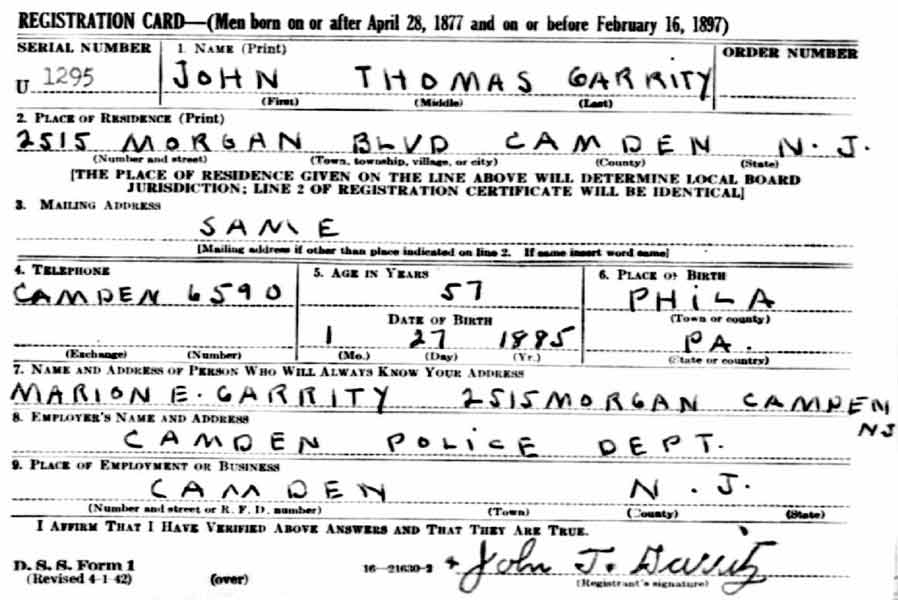 REGISTRATION CARD—(Men born on or after April 28, 1877 and on or before February 16, 1897)
SERIAL NUMBER 1. NAME (Print) ORDER NUMBER
U 1295 JOHN THOMAS GARRITY
(First) (Middle) (Last)
2. PLACE OF RESIDENCE (Print)
2515 MORGAN BLVD CAMDEN N. J.
(Number and street) (Town, township, village, or city) (County) (State)
[THE PLACE OF RESIDENCE GIVEN ON THE LINE ABOVE WILL DETERMINE LOCAL BOARD
JURISDICTION; LINE 2 OF REGISTRATION CERTIFICATE WILL BE IDENTICAL]
3. MAILING ADDRESS
SAME
[Mailing address if other than place indicated on line 2. If same insert word same]
4. TELEPHONE 5. AGE IN YEARS 6. PLACE OF BIRTH
CAMDEN 6590 57 PHILA
DATE OF BIRTH (Town or county)
1 27 1885 PA.
(Exchange) (Number) (Mo.) (Day) (Yr.) (State or country)
7. NAME AND ADDRESS OF PERSON WHO WILL ALWAYS KNOW YOUR ADDRESS
MARION E. GARRITY 2515 MORGAN CAMDEN
NJ
8. EMPLOYER'S NAME AND ADDRESS
CAMDEN POLICE DEPT.
9. PLACE OF EMPLOYMENT OR BUSINESS
CAMDEN N. J.
(Number and street or R. F. D. number) (Town) (County) (State)
I AFFIRM THAT I HAVE VERIFIED ABOVE ANSWERS AND THAT THEY ARE TRUE.
D. S. S. Form 1
(Revised 4-1-42) (over) 16—21630-2 John T. Garrity
(Registrant's signature)